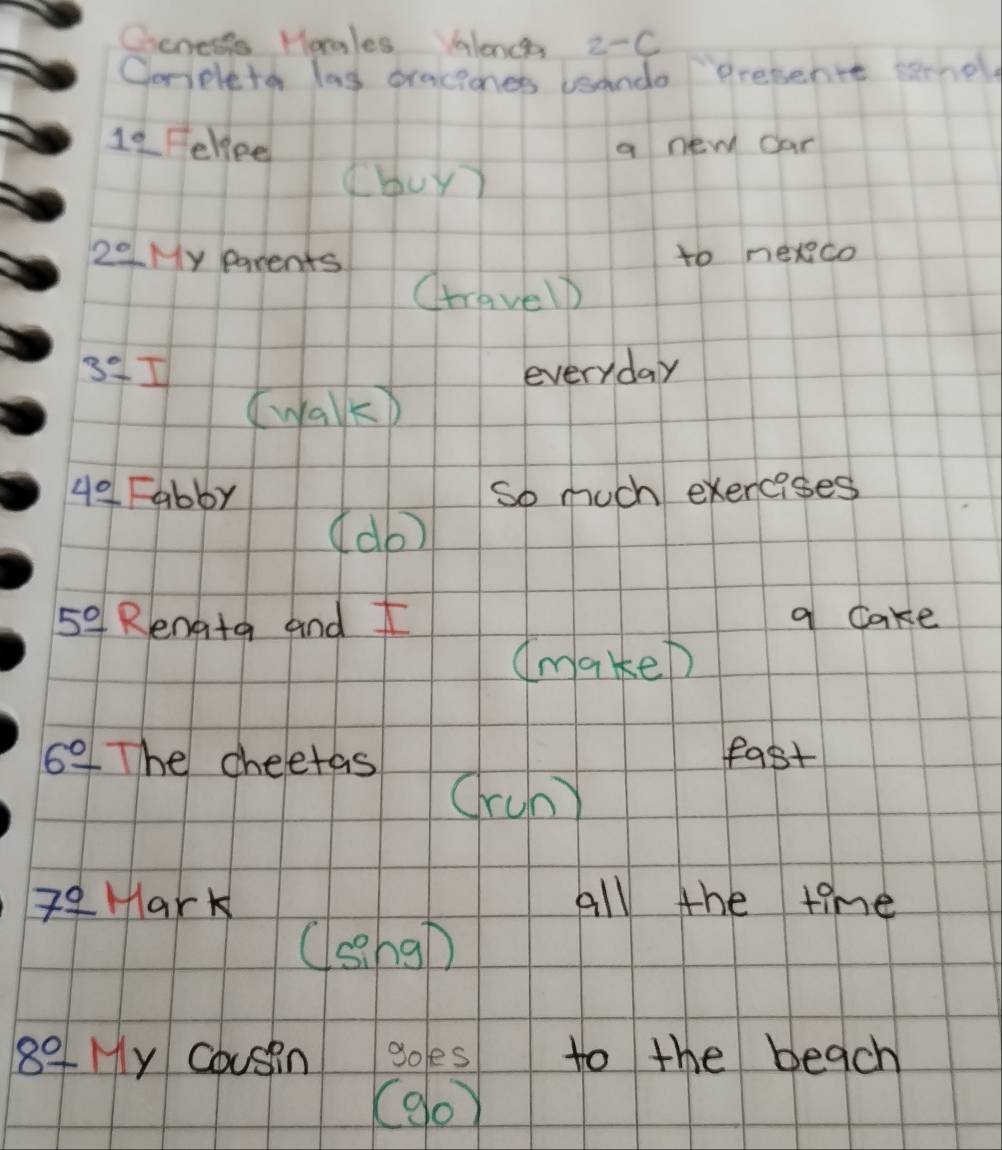 Genesis Morales Valencia 2-C
Completa las oraciones usando "presente
1º Felipe a new car
(buy)
2º My parents to mexico
(travel)
3º I everyday
(walk)
4º Fabby so much exercises
(do)
5º Renata and I a cake
(make)
6º The cheetas fast
(run)
7º Mark all the time
(sing)
8º My cousin goes to the beach
(go)